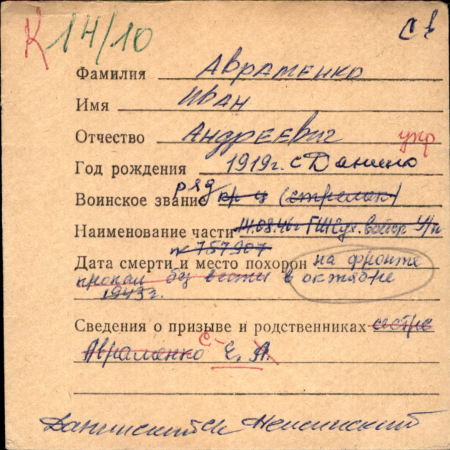 К 14/10
Фамилия Авраменко
Имя Иван
Отчество Андреевич укр
Год рождения 1919г. с Данино
Воинское звание ряд (стрелок)
Наименование части 14.08.46г
№ 757907
Дата смерти и место похорон на фронте
пропал без вести в октябре
1943г.
Сведения о призыве и родственниках сестра
Авраменко С. Е. А.